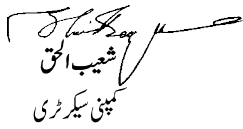 شعیب الحق
کمپنی سیکرٹری